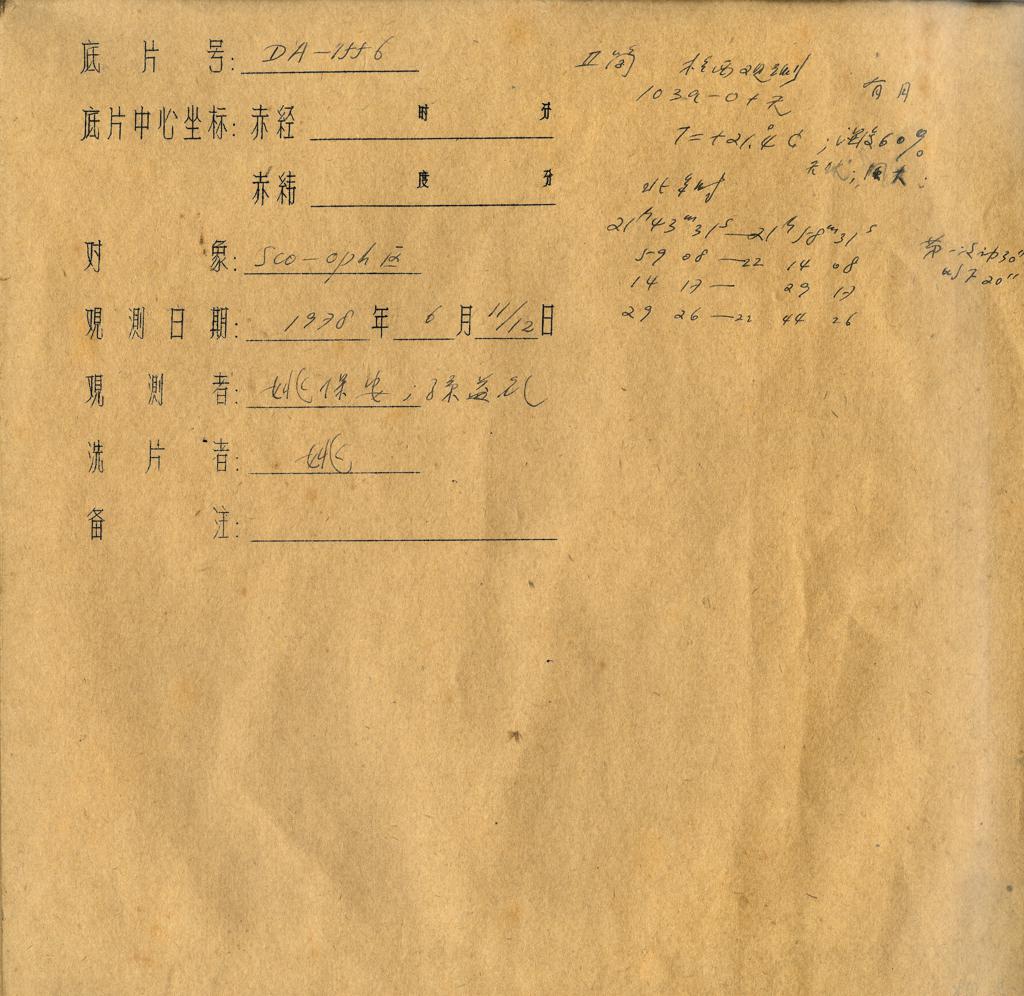 底片号: DA-1556
底片中心坐标: 赤经 时 分
赤纬 度 分
对象: Sco-oph 区
观测日期: 1978 年 6 月 11/12 日
观测者: 姚保安;
洗片者: 姚
备注:
II 观测
103a-O+ 有月
T=+21.4°C; 湿度60%
风大;
北京时
21ʰ43ᵐ31ˢ—21ʰ58ᵐ31ˢ
59 08—22 14 08
14 17— 29 17
29 26—22 44 26
第一次 30"
以下20"